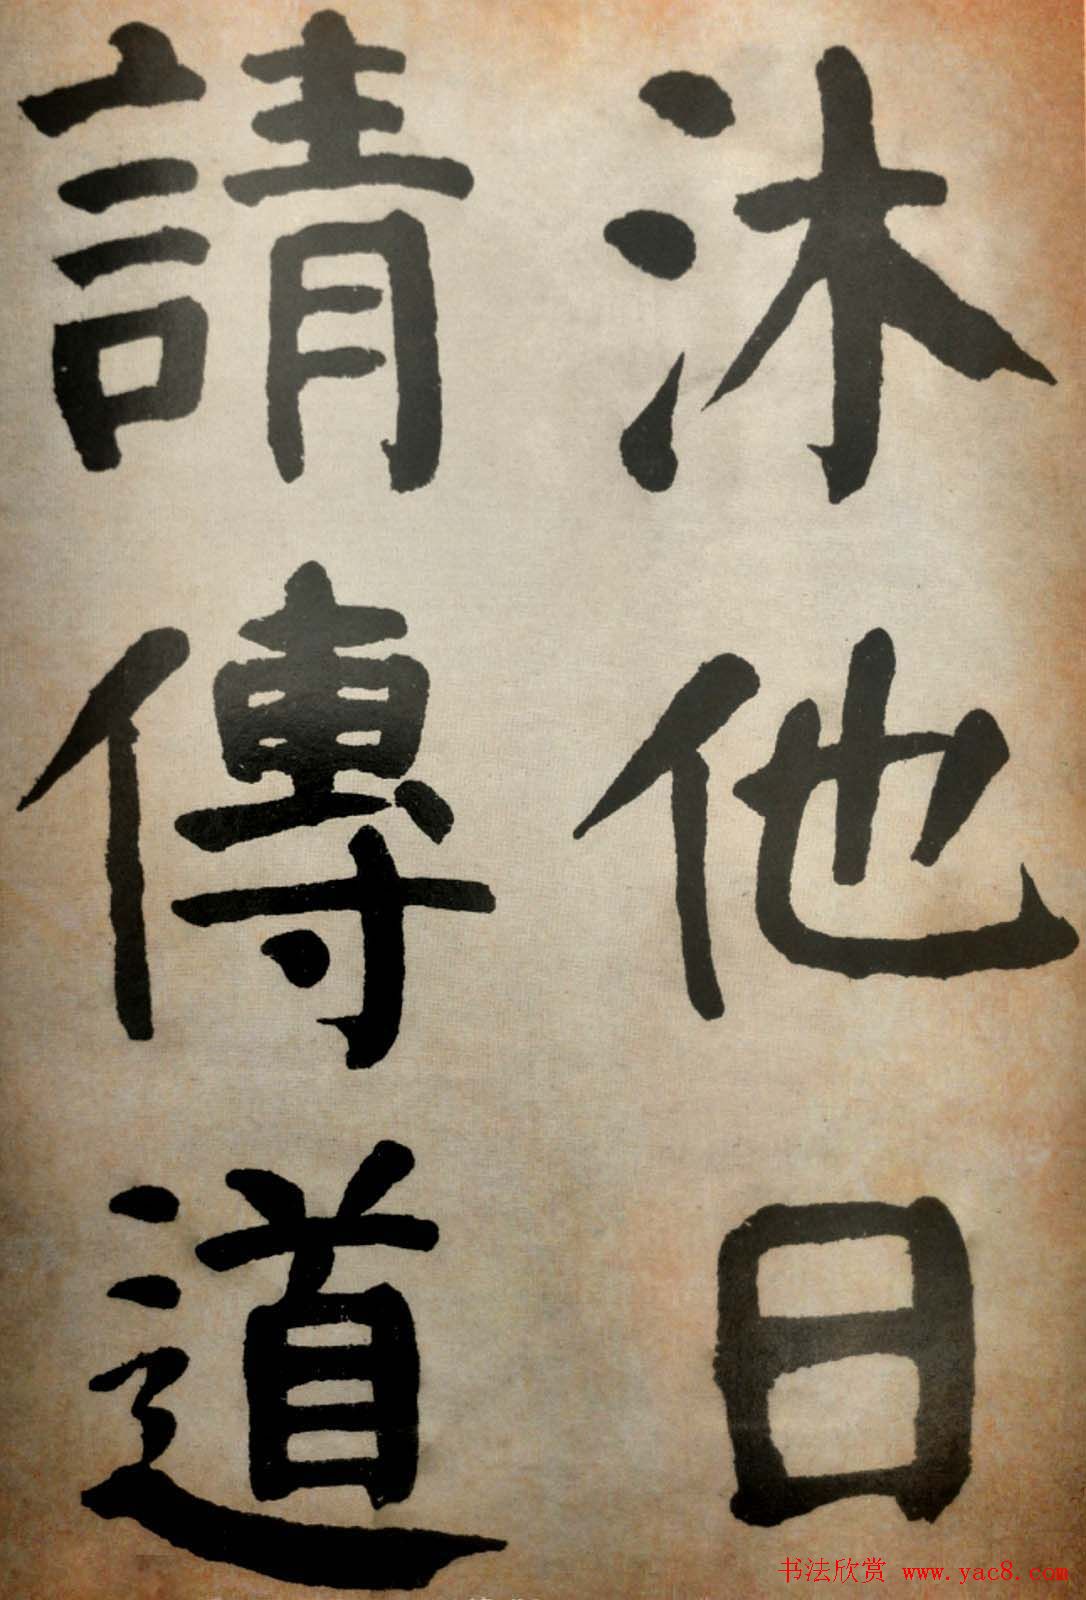 沐他日
請傳道
书法欣赏 www.yac8.com